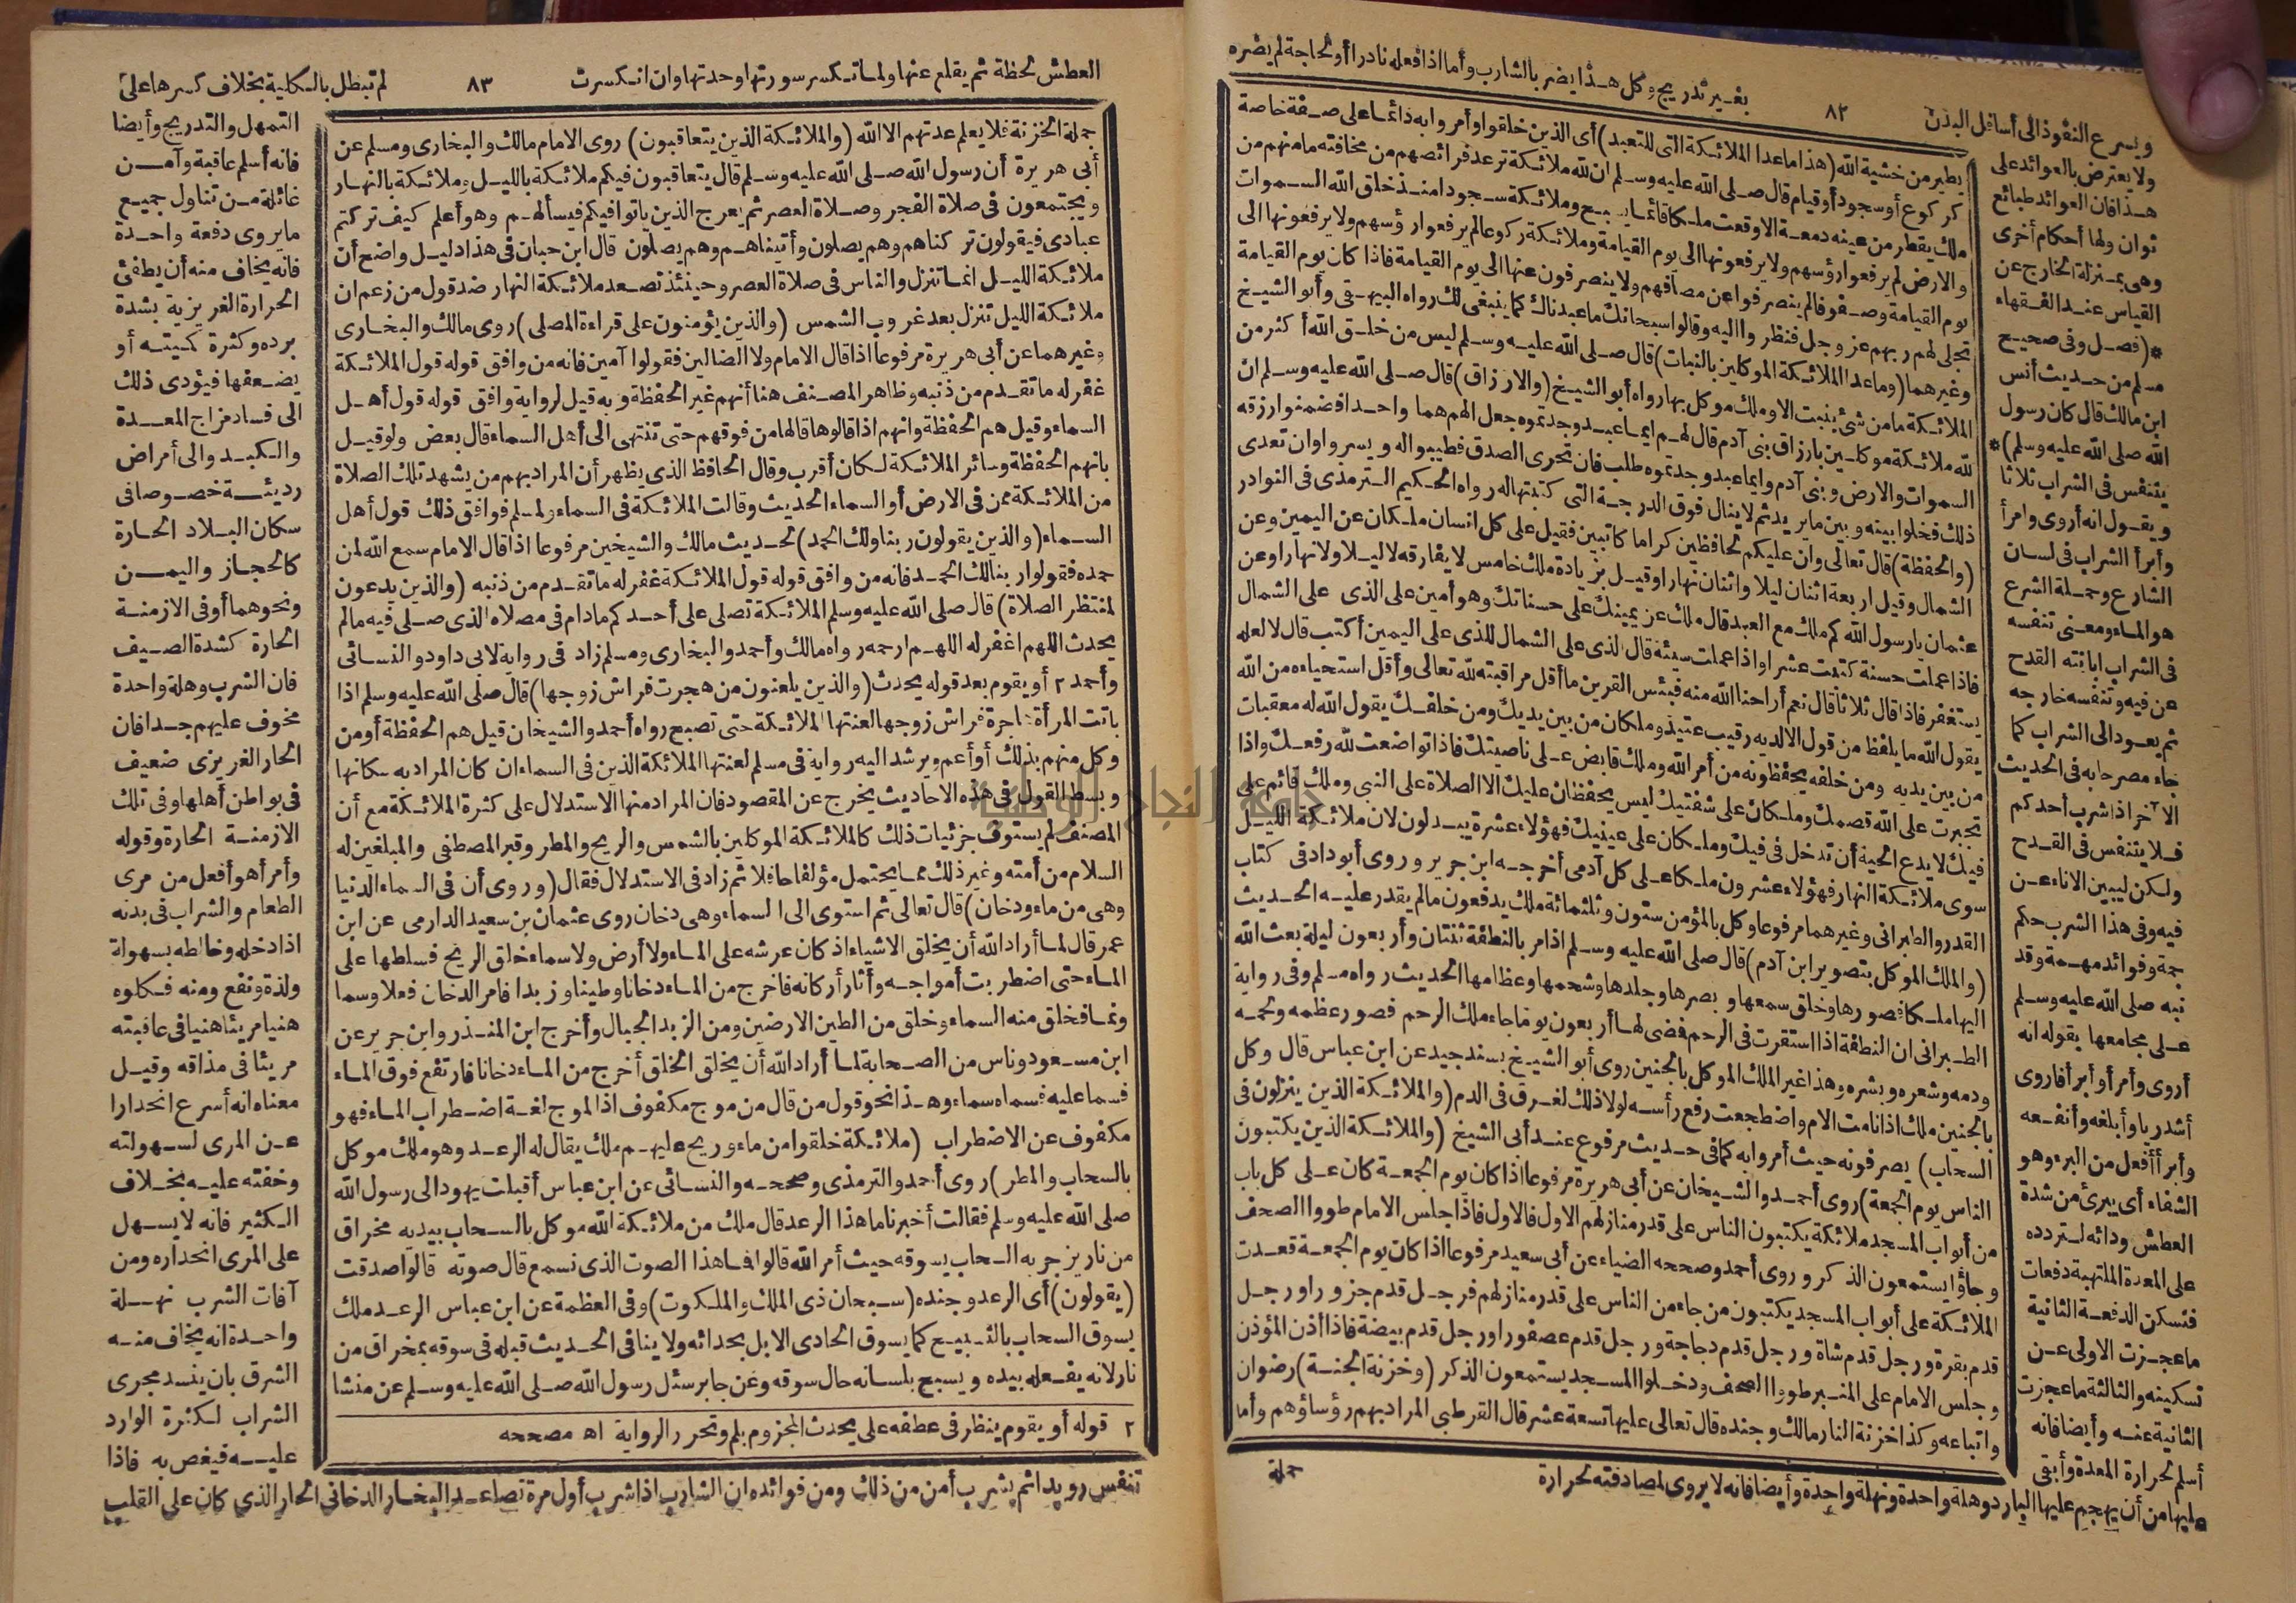 بغير تدريج وكل هذا يضر بالشارب وأما اذا فعله نادرا أو لحاجة لم يضره
٨٢
ويسرع النفوذ الى أسافل البدن
ولا يعترض بالعوائد على
هذا فان العوائد طبائع
ثوان ولها أحكام أخرى
وهى بمنزلة الخارج عن
القياس عند الفقهاء
*(فصل وفى صحيح
مسلم من حديث أنس
ابن مالك قال كان رسول
الله صلى الله عليه وسلم)*
يتنفس فى الشراب ثلاثا
ويقول انه أروى وامرأ
وأبرأ الشراب فى لسان
الشارع وحملة الشرع
هو الماء ومعنى تنفسه
فى الشراب ابانته القدح
عن فيه وتنفسه خارجه
ثم يعود الى الشراب كما
جاء مصرحا به فى الحديث
الآخر اذا شرب أحدكم
فلا يتنفس فى القدح
ولكن ليبين الاناء عن
فيه وفى هذا الشرب حكم
جمة وفوائد مهمة وقد
نبه صلى الله عليه وسلم
على مجامعها بقوله انه
أروى وأمرأ وأبرأ فاروى
أشد ريا وأبلغه وأنفعه
وأبرأ أفعل من البرء وهو
الشفاء أى يبرئ من شدة
العطش ودائه لتردده
على المعدة الملتهبة دفعات
فتسكن الدفعة الثانية
ما عجزت الاولى عن
تسكينه والثالثة ما عجزت
الثانية عنه وأيضا فانه
أسلم لحرارة المعدة وأبقى
عليها من أن يهجم عليها البارد وهلة واحدة ونهلة واحدة وأيضا فانه لا يروى لمصادفته لحرارة
يطير من خشية الله (هذا ما عدا الملائكة التى للتعبد) أى الذين خلقوا وأمروا به دائما على صفة خاصة
كركوع أو سجود أو قيام قال صلى الله عليه وسلم ان لله ملائكة ترعد فرائصهم من مخافته ما منهم من
ملك يقطر من عينه دمعة الا وقعت ملكا قائما يسبح وملائكة سجودا منذ خلق الله السموات
والارض لم يرفعوا رؤسهم ولا يرفعونها الى يوم القيامة وملائكة ركوعا لم يرفعوا رؤسهم ولا يرفعونها الى
يوم القيامة وصفوفا لم ينصرفوا عن مصافهم ولا ينصرفون عنها الى يوم القيامة فاذا كان يوم القيامة
تجلى لهم ربهم عز وجل فنظروا اليه وقالوا سبحانك ما عبدناك كما ينبغى لك رواه البيهقى وأبو الشيخ
وغيرهما (وما عدا الملائكة الموكلين بالنبات) قال صلى الله عليه وسلم ليس من خلق الله أكثر من
الملائكة ما من شئ ينبت الا وملك موكل بها رواه أبو الشيخ (والارزاق) قال صلى الله عليه وسلم ان
لله ملائكة موكلين بارزاق بنى آدم قال لهم ايما عبد وجدتموه جعل الهم هما واحدا فضمنوا رزقه
السموات والارض وبنى آدم وايما عبد وجدتموه طلب فان تحرى الصدق فطيبوا له ويسروا وان تعدى
ذلك فخلوا بينه وبين ما يريد ثم لا ينال فوق الدرجة التى كتبتها له رواه الحكيم الترمذى فى النوادر
(والحفظة) قال تعالى وان عليكم لحافظين كراما كاتبين فقيل على كل انسان ملكان عن اليمين وعن
الشمال وقيل اربعة اثنان ليلا واثنان نهارا وقيل بزيادة ملك خامس لا يفارقه لا ليلا ولا نهارا وعن
عثمان يا رسول الله كم ملك مع العبد قال ملك عن يمينك على حسناتك وهو أمين على الذى على الشمال
فاذا عملت حسنة كتبت عشرا واذا عملت سيئة قال الذى على الشمال للذى على اليمين أكتب قال لا لعله
يستغفر فاذا قال ثلاثا قال نعم أراحنا الله منه فبئس القرين ما أقل مراقبته لله تعالى وأقل استحياءه من الله
يقول الله ما يلفظ من قول الا لديه رقيب عتيد وملكان من بين يديك ومن خلفك يقول الله له معقبات
من بين يديه ومن خلفه يحفظونه من أمر الله وملك قابض على ناصيتك فاذا تواضعت لله رفعك واذا
تجبرت على الله قصمك وملكان على شفتيك ليس يحفظان عليك الا الصلاة على النبى وملك قائم على
فيك لا يدع الحية أن تدخل فى فيك وملكان على عينيك فهؤلاء عشرة يبدلون لان ملائكة الليل
سوى ملائكة النهار فهؤلاء عشرون ملكا على كل آدمى أخرجه ابن جرير وروى أبو داد فى كتاب
القدر والطبرانى وغيرهما مرفوعا وكل بالمؤمن ستون وثلثمائة ملك يدفعون ما لم يقدر عليه الحديث
(والملك الموكل بتصوير ابن آدم) قال صلى الله عليه وسلم اذا مر بالنطفة ثنتان وأربعون ليلة بعث الله
اليها ملكا فصورها وخلق سمعها وبصرها وجلدها وشحمها وعظامها الحديث رواه مسلم وفى رواية
الطبرانى ان النطفة اذا استقرت فى الرحم فمضى لها أربعون يوما جاء ملك الرحم فصور عظمه ولحمه
ودمه وشعره وبشره وهذا غير الملك الموكل بالجنين روى أبو الشيخ بسند جيد عن ابن عباس قال وكل
بالجنين ملك اذا نامت الام واضطجعت رفع رأسه لولا ذلك لغرق فى الدم (والملائكة الذين ينزلون فى
السحاب) يصرفونه حيث أمروا به كما فى حديث مرفوع عند أبى الشيخ (والملائكة الذين يكتبون
الناس يوم الجمعة) روى أحمد والشيخان عن أبى هريرة مرفوعا اذا كان يوم الجمعة كان على كل باب
من أبواب المسجد ملائكة يكتبون الناس على قدر منازلهم الاول فالاول فاذا جلس الامام طووا الصحف
وجاؤا يستمعون الذكر وروى أحمد وصححه الضياء عن أبى سعيد مرفوعا اذا كان يوم الجمعة قعدت
الملائكة على أبواب المسجد يكتبون من جاء من الناس على قدر منازلهم فرجل قدم جزورا ورجل
قدم بقرة ورجل قدم شاة ورجل قدم دجاجة ورجل قدم عصفورا ورجل قدم بيضة فاذا أذن المؤذن
وجلس الامام على المنبر طووا الصحف ودخلوا المسجد يستمعون الذكر (وخزنة الجنة) رضوان
واتباعه وكذا خزنة النار مالك وجنده قال تعالى عليها تسعة عشر قال القرطبى المراد بهم رؤساؤهم وأما
جملة
العطش لحظة ثم يقلع عنها ولما تكسر سورتها وحدتها وان انكسرت
٨٣
لم تبطل بالكلية بخلاف كسرها على
التمهل والتدريج وأيضا
فانه أسلم عاقبة وآمن
غائلة من تناول جميع
ما يروى دفعة واحدة
فانه يخاف منه أن يطفئ
الحرارة الغريزية بشدة
برده وكثرة كميته أو
يضعفها فيؤدى ذلك
الى فساد مزاج المعدة
والكبد والى أمراض
رديئة خصوصا فى
سكان البلاد الحارة
كالحجاز واليمن
ونحوهما أو فى الازمنة
الحارة كشدة الصيف
فان الشرب وهلة واحدة
مخوف عليهم جدا فان
الحار الغريزى ضعيف
فى بواطن أهلها وفى تلك
الازمنة الحارة وقوله
وأمرأ هو أفعل من مرى
الطعام والشراب فى بدنه
اذا دخله وخالطه بسهولة
ولذة ونفع ومنه فكلوه
هنيا مريئا هنيا فى عاقبته
مريئا فى مذاقه وقيل
معناه انه أسرع انحدارا
عن المرى لسهولته
وخفته عليه بخلاف
الكثير فانه لا يسهل
على المرى انحداره ومن
آفات الشرب نهلة
واحدة انه يخاف منه
الشرق بان ينسد مجرى
الشراب لكثرة الوارد
عليه فيغص به فاذا
جملة الخزنة فلا يعلم عدتهم الا الله (والملائكة الذين يتعاقبون) روى الامام مالك والبخارى ومسلم عن
أبى هريرة أن رسول الله صلى الله عليه وسلم قال يتعاقبون فيكم ملائكة بالليل وملائكة بالنهار
ويجتمعون فى صلاة الفجر وصلاة العصر ثم يعرج الذين باتوا فيكم فيسألهم وهو أعلم كيف تركتم
عبادى فيقولون تركناهم وهم يصلون وأتيناهم وهم يصلون قال ابن حبان فى هذا دليل واضح أن
ملائكة الليل انما تنزل والناس فى صلاة العصر وحينئذ تصعد ملائكة النهار ضد قول من زعم ان
ملائكة الليل تنزل بعد غروب الشمس (والذين يؤمنون على قراءة المصلى) روى مالك والبخارى
وغيرهما عن أبى هريرة مرفوعا اذا قال الامام ولا الضالين فقولوا آمين فانه من وافق قوله قول الملائكة
غفر له ما تقدم من ذنبه وظاهر المصنف هنا أنهم غير الحفظة وبه قيل لرواية وافق قوله قول أهل
السماء وقيل هم الحفظة وانهم اذا قالوها قالها من فوقهم حتى تنتهى الى أهل السماء قال بعض ولو قيل
بانهم الحفظة وسائر الملائكة لكان أقرب وقال الحافظ الذى يظهر أن المراد بهم من يشهد تلك الصلاة
من الملائكة ممن فى الارض أو السماء الحديث وقالت الملائكة فى السماء ولمسلم فوافق ذلك قول أهل
السماء (والذين يقولون ربنا ولك الحمد) لحديث مالك والشيخين مرفوعا اذا قال الامام سمع الله لمن
حمده فقولوا ربنا لك الحمد فانه من وافق قوله قول الملائكة غفر له ما تقدم من ذنبه (والذين يدعون
لمنتظر الصلاة) قال صلى الله عليه وسلم الملائكة تصلى على أحدكم مادام فى مصلاه الذى صلى فيه ما لم
يحدث اللهم اغفر له اللهم ارحمه رواه مالك وأحمد والبخارى ومسلم زاد فى رواية لابى داود والنسائى
وأحمد ٢ أو يقوم بعد قوله يحدث (والذين يلعنون من هجرت فراش زوجها) قال صلى الله عليه وسلم اذا
باتت المرأة هاجرة فراش زوجها لعنتها الملائكة حتى تصبح رواه أحمد والشيخان قيل هم الحفظة أو من
وكل منهم بذلك أو أعم ويرشد اليه رواية فى مسلم لعنتها الملائكة الذين فى السماء ان كان المراد به سكانها
وبسط القول فى هذه الاحاديث يخرج عن المقصود فان المراد منها الاستدلال على كثرة الملائكة مع أن
المصنف لم يستوف جزئيات ذلك كالملائكة الموكلين بالشمس والريح والمطر وقبر المصطفى والمبلغين له
السلام من أمته وغير ذلك مما يحتمل مؤلفا حافلا ثم زاد فى الاستدلال فقال (وروى أن فى السماء الدنيا
وهى من ماء ودخان) قال تعالى ثم استوى الى السماء وهى دخان روى عثمان بن سعيد الدارمى عن ابن
عمر قال لما أراد الله أن يخلق الاشياء اذ كان عرشه على الماء ولا أرض ولا سماء خلق الريح فسلطها على
الماء حتى اضطربت أمواجه وأثار أركانه فاخرج من الماء دخانا وطينا وزبدا فامر الدخان فعلا وسما
ونما فخلق منه السماء وخلق من الطين الارضين ومن الزبد الجبال وأخرج ابن المنذر وابن جرير عن
ابن مسعود وناس من الصحابة لما أراد الله أن يخلق الخلق أخرج من الماء دخانا فارتفع فوق الماء
فسما عليه فسماه سماء وهذا نحو قول من قال من موج مكفوف اذ الموج لغة اضطراب الماء فهو
مكفوف عن الاضطراب (ملائكة خلقوا من ماء وريح عليهم ملك يقال له الرعد وهو ملك موكل
بالسحاب والمطر) روى أحمد والترمذى وصححه والنسائى عن ابن عباس أقبلت يهود الى رسول الله
صلى الله عليه وسلم فقالت أخبرنا ما هذا الرعد قال ملك من ملائكة الله موكل بالسحاب بيديه مخراق
من نار يزجر به السحاب يسوقه حيث أمر الله قالوا فما هذا الصوت الذى نسمع قال صوته قالوا صدقت
(يقولون) أى الرعد وجنده (سبحان ذى الملك والملكوت) وفى العظمة عن ابن عباس الرعد ملك
يسوق السحاب بالتسبيح كما يسوق الحادى الابل بحدائه ولا ينافى الحديث قبله فى سوقه بمخراق من
نار لانه يفعله بيده ويسبح بلسانه حال سوقه وعن جابر سئل رسول الله صلى الله عليه وسلم عن منشا
٢ قوله أو يقوم ينظر فى عطفه على يحدث المجزوم بلم وتحرر الرواية اه مصححه
تنفس رويدا ثم يشرب أمن من ذلك ومن فوائده ان الشارب اذا شرب أول مرة تصاعد البخار الدخانى الحار الذى كان على القلب